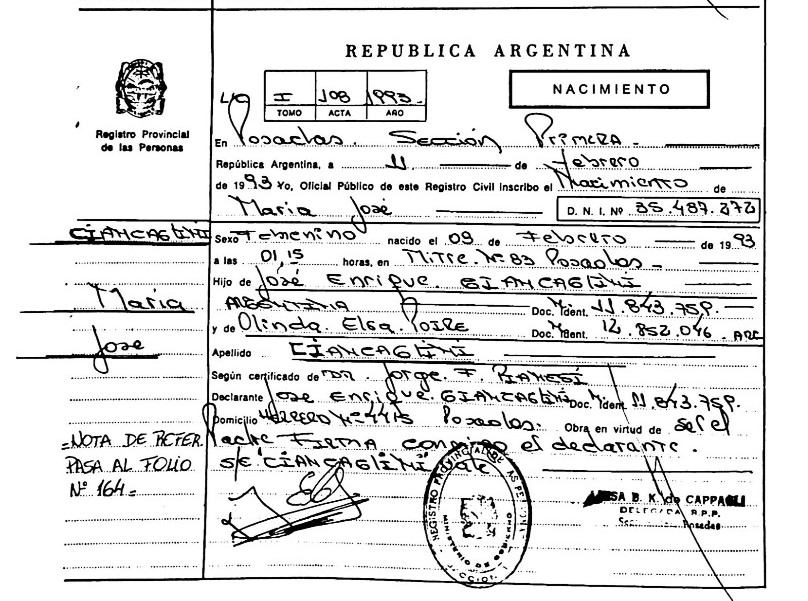 REPUBLICA ARGENTINA
NACIMIENTO
I 108 1993
TOMO ACTA AÑO
Registro Provincial
de las Personas
En Posadas. Sección Primera
República Argentina, a 11 de Febrero
de 1993 Yo, Oficial Público de este Registro Civil inscribo el Nacimiento de
María José D. N. I. Nº 35.487.272
CIANCAGLINI
María
José
Sexo Femenino nacido el 09 de Febrero de 1993
a las 01,15 horas, en Mitre Nº 83 Posadas
Hijo de José Enrique. CIANCAGLINI
ARGENTINA Doc. Ident. M. 11.843.759.
y de Olinda. Elsa. Doc. Ident. 12.852.046. ARG
Apellido CIANCAGLINI
Según certificado de Jorge. F.
Declarante Jose Enrique. CIANCAGLINI Doc. Ident. M 11.843.759.
Domicilio Nº 4415 Posadas. Obra en virtud de ser el
Padre FIRMA conmigo el declarante.
S/E: CIANCAGLINI vale
=NOTA DE REFER.
PASA AL FOLIO
Nº 164=
REGISTRO PROVINCIAL DE LAS PERSONAS
MINISTERIO DE GOBIERNO
B. K. de CAPPAGLI
DELEGADA R.P.P.
Posadas